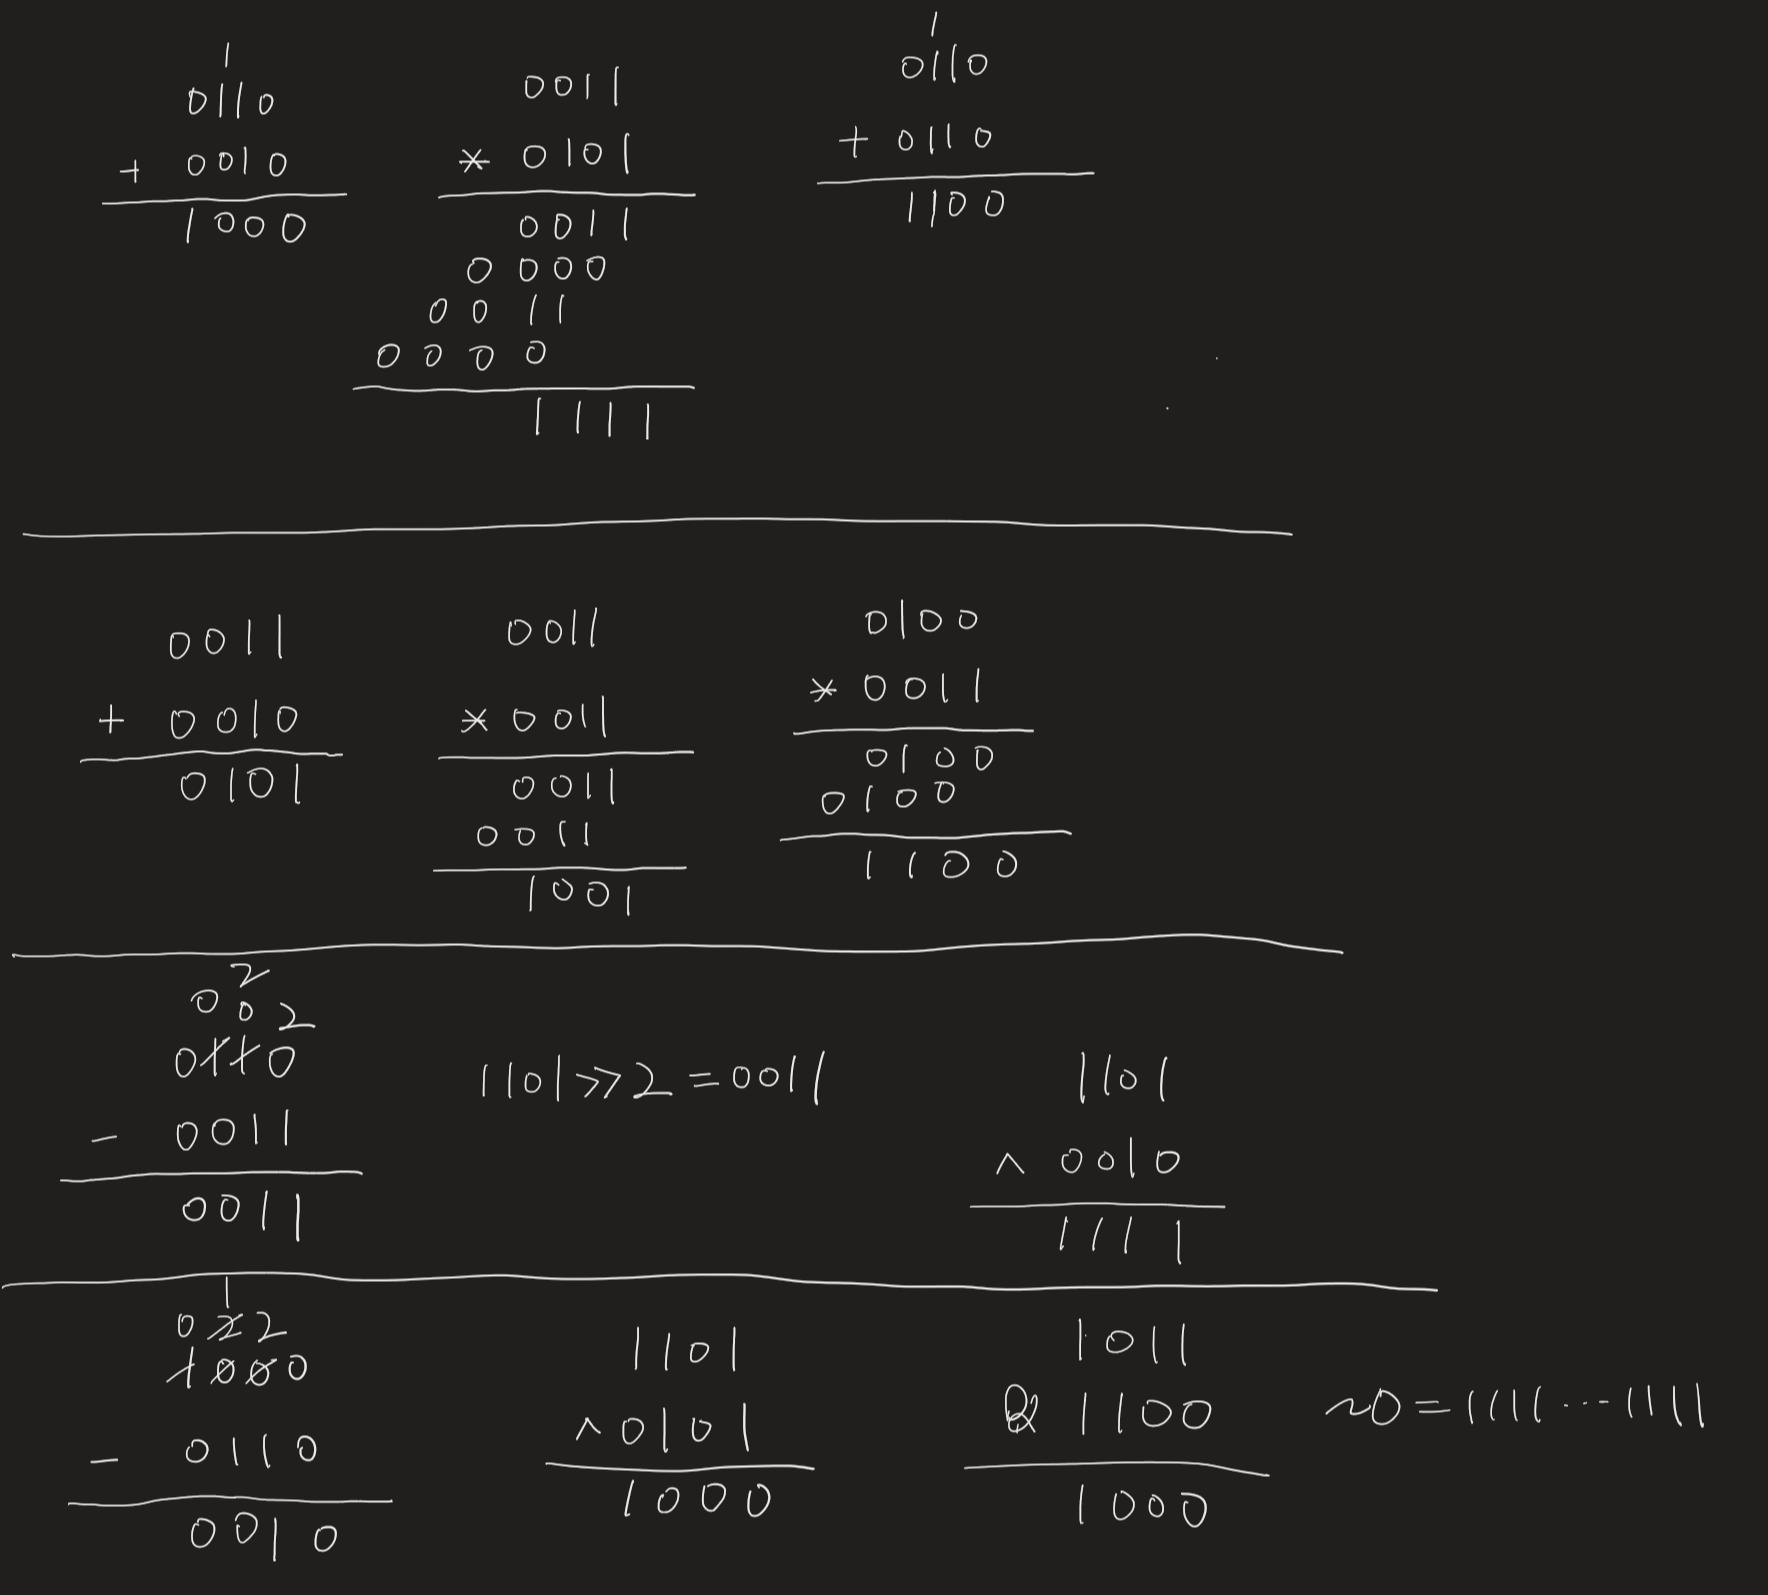 1
0110
+ 0010
1000
0011
* 0101
0011
0000
0011
0000
1111
1
0110
+ 0110
1100
0011
+ 0010
0101
0011
* 0011
0011
0011
1001
0100
* 0011
0100
0100
1100
2
0 0 2
0110
- 0011
0011
1101 >> 2 = 0011
1101
^ 0010
1111
1
0 2 2
1000
- 0110
0010
1101
^ 0101
1000
1011
& 1100
1000
~0 = 1111 ... 1111